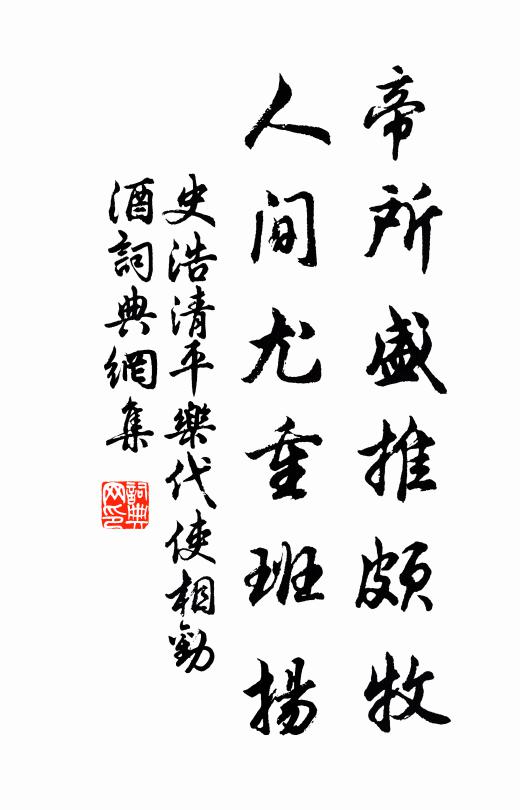 帝所盛推頗牧
人间尤重班揚
史浩清平樂代使相勸
酒詞典網集
詞典
网印